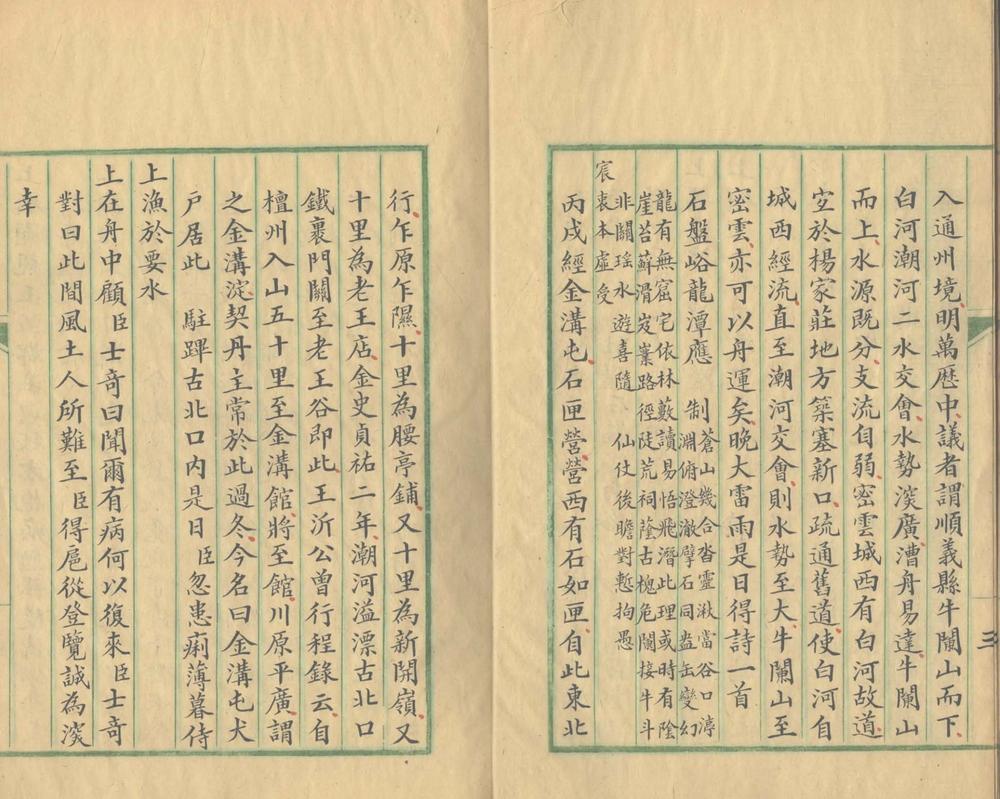 入通州境明萬歷中議者謂順義縣牛闌山而下
白河潮河二水交會水勢深廣漕舟易達牛闌山
而上水源既分支流自弱密雲城西有白河故道
宜於楊家莊地方築塞新口疏通舊道使白河自
城西經流直至潮河交會則水勢至大牛闌山至
密雲亦可以舟運矣晚大雷雨是日得詩一首
石盤峪龍潭應 制蒼山幾合沓靈湫當谷口渟
淵俯澄澈擘石同盎缶變幻
龍有無窟宅依林藪讀易悟飛潛此理或時有陰
崖苔蘚滑岌嶪路徑陡荒祠蔭古槐危闌接牛斗
非關瑤水遊喜隨 仙仗後瞻對慙拘愚
宸衷本虛受
丙戌經金溝屯石匣營營西有石如匣自此東北
行乍原乍隰十里為腰亭鋪又十里為新開嶺又
十里為老王店金史貞祐二年潮河溢漂古北口
鐵裹門關至老王谷即此王沂公曾行程錄云自
檀州入山五十里至金溝館將至館川原平廣謂
之金溝淀契丹主常於此過冬今名曰金溝屯犬
戶居此 駐蹕古北口内是日臣忽患痢薄暮侍
上漁於要水
上在舟中顧臣士奇曰聞爾有病何以復來臣士奇
對曰此間風土人所難至臣得扈從登覽誠為深
幸
三